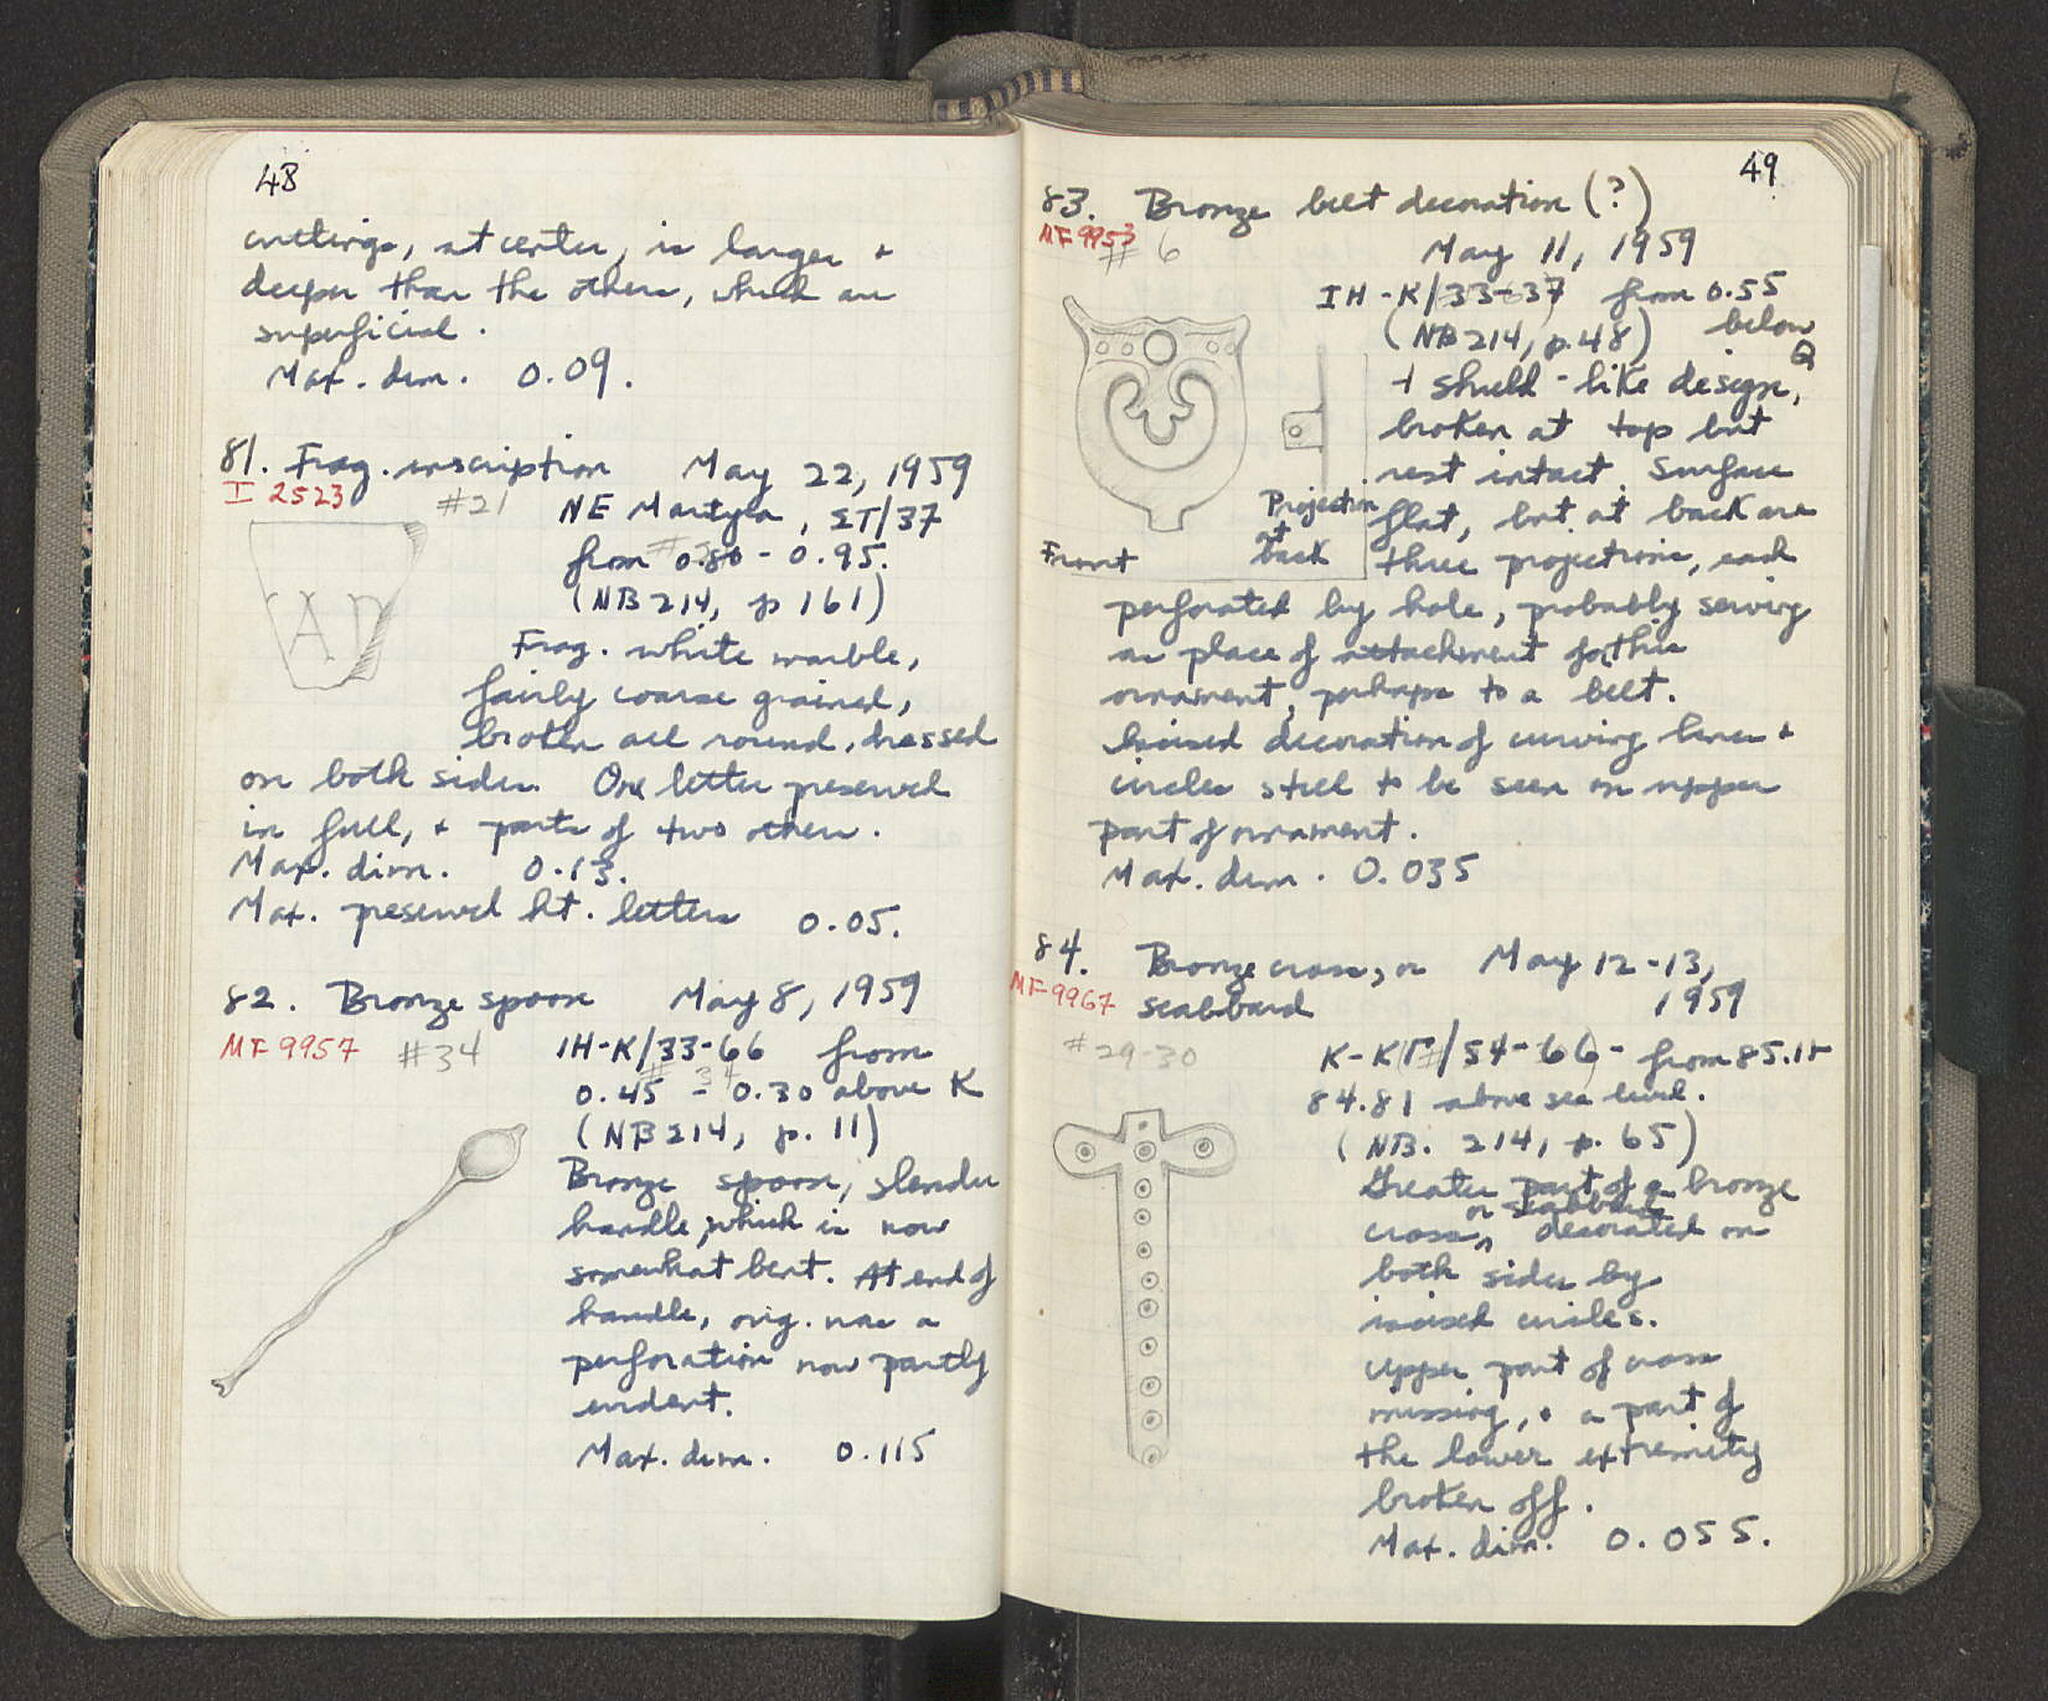 48
cuttings, at center, is larger +
deeper than the others, which are
superficial.
Max. dim. 0.09.
81. Frag. inscription May 22, 1959
I 2523 #21
NE Martyla, ΣΤ/37
from 0.80 - 0.95.
(NB 214, p 161)
Α
Frag. white marble,
fairly coarse grained,
broken all round, dressed
on both sides. One letter preserved
in full, + parts of two others.
Max. dim. 0.13.
Max. preserved ht. letters 0.05.
82. Bronze spoon May 8, 1959
MF 9957 #34
IH-K/33-66 from
0.45 - 0.30 above K
(NB 214, p. 11)
Bronze spoon, slender
handle, which is now
somewhat bent. At end of
handle, orig. was a
perforation now partly
evident.
Max. dim. 0.115
49
83. Bronze belt decoration (?)
MF 9953
# 6
May 11, 1959
IH-K/33-37 from 0.55
(NB 214, p. 48) below
Q
A shield-like design,
broken at top but
rest intact. Surface
flat, but at back are
three projections, each
Front
Projection
at
back
perforated by hole, probably serving
as place of attachment for this
ornament, perhaps to a belt.
Incised decoration of curving lines +
circles still to be seen on upper
part of ornament.
Max. dim. 0.035
84. Bronze cross, or May 12-13,
MF 9967 scabbard 1959
#29-30
K-ΚΓ/54-66 - from 85.18
84.81 above sea level.
(NB. 214, p. 65)
Greater part of a bronze
or scabbard
cross, decorated on
both sides by
incised circles.
Upper part of cross
missing, + a part of
the lower extremity
broken off.
Max. dim. 0.055.